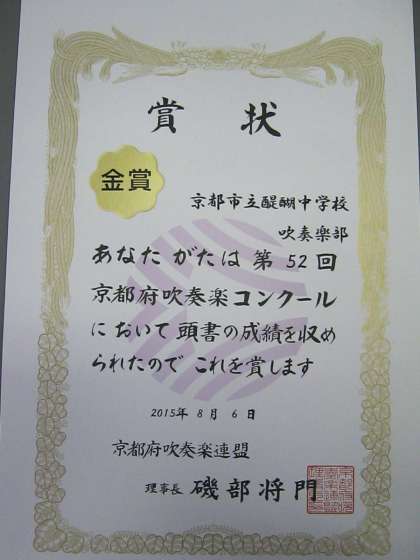 賞状
金賞
京都市立醍醐中学校
吹奏楽部
あなたがたは第52回
京都府吹奏楽コンクール
において頭書の成績を収め
られたのでこれを賞します
2015年8月6日
京都府吹奏楽連盟
理事長 磯部将門